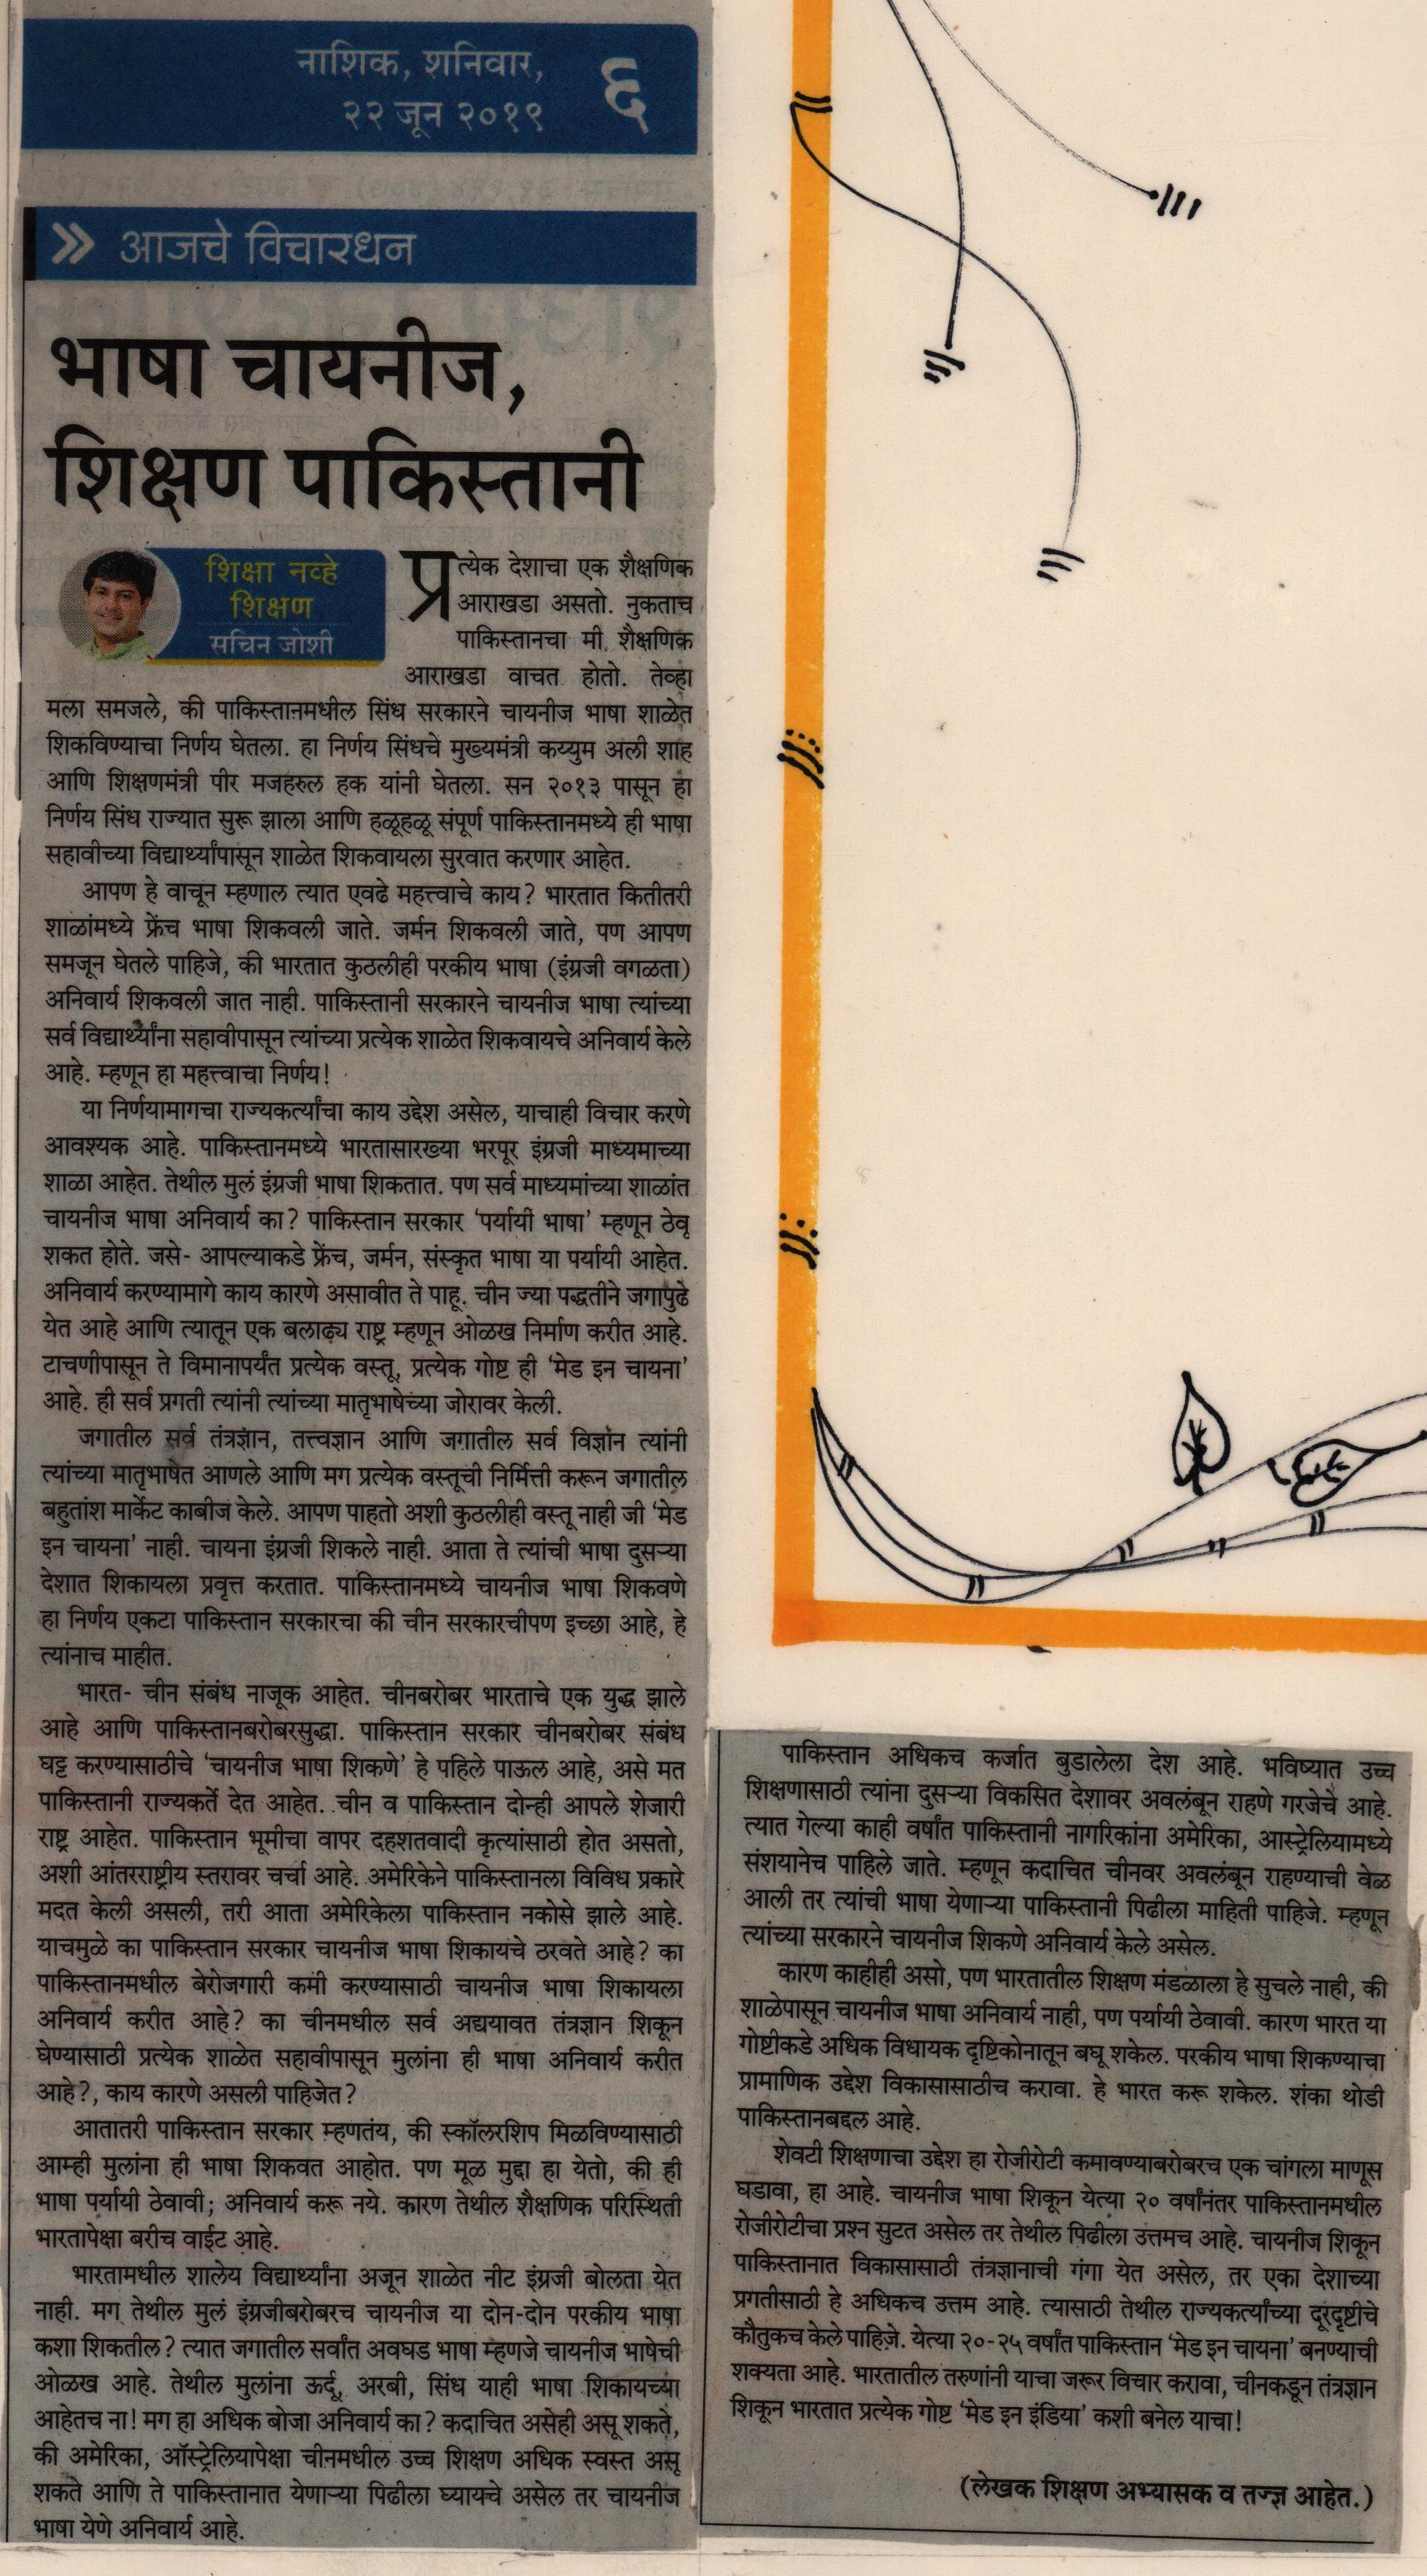 नाशिक, शनिवार,
२२ जून २०१९
६
» आजचे विचारधन
भाषा चायनीज,
शिक्षण पाकिस्तानी
शिक्षा नव्हे
शिक्षण
सचिन जोशी
प्रत्येक देशाचा एक शैक्षणिक
आराखडा असतो. नुकताच
पाकिस्तानचा मी शैक्षणिक
आराखडा वाचत होतो. तेव्हा
मला समजले, की पाकिस्तानमधील सिंध सरकारने चायनीज भाषा शाळेत
शिकविण्याचा निर्णय घेतला. हा निर्णय सिंधचे मुख्यमंत्री कय्युम अली शाह
आणि शिक्षणमंत्री पीर मजहरुल हक यांनी घेतला. सन २०१३ पासून हा
निर्णय सिंध राज्यात सुरू झाला आणि हळूहळू संपूर्ण पाकिस्तानमध्ये ही भाषा
सहावीच्या विद्यार्थ्यांपासून शाळेत शिकवायला सुरवात करणार आहेत.
आपण हे वाचून म्हणाल त्यात एवढे महत्त्वाचे काय? भारतात कितीतरी
शाळांमध्ये फ्रेंच भाषा शिकवली जाते. जर्मन शिकवली जाते, पण आपण
समजून घेतले पाहिजे, की भारतात कुठलीही परकीय भाषा (इंग्रजी वगळता)
अनिवार्य शिकवली जात नाही. पाकिस्तानी सरकारने चायनीज भाषा त्यांच्या
सर्व विद्यार्थ्यांना सहावीपासून त्यांच्या प्रत्येक शाळेत शिकवायचे अनिवार्य केले
आहे. म्हणून हा महत्त्वाचा निर्णय!
या निर्णयामागचा राज्यकर्त्यांचा काय उद्देश असेल, याचाही विचार करणे
आवश्यक आहे. पाकिस्तानमध्ये भारतासारख्या भरपूर इंग्रजी माध्यमाच्या
शाळा आहेत. तेथील मुलं इंग्रजी भाषा शिकतात. पण सर्व माध्यमांच्या शाळांत
चायनीज भाषा अनिवार्य का? पाकिस्तान सरकार ‘पर्यायी भाषा’ म्हणून ठेवू
शकत होते. जसे- आपल्याकडे फ्रेंच, जर्मन, संस्कृत भाषा या पर्यायी आहेत.
अनिवार्य करण्यामागे काय कारणे असावीत ते पाहू. चीन ज्या पद्धतीने जगापुढे
येत आहे आणि त्यातून एक बलाढ्य राष्ट्र म्हणून ओळख निर्माण करीत आहे.
टाचणीपासून ते विमानापर्यंत प्रत्येक वस्तू, प्रत्येक गोष्ट ही ‘मेड इन चायना’
आहे. ही सर्व प्रगती त्यांनी त्यांच्या मातृभाषेच्या जोरावर केली.
जगातील सर्व तंत्रज्ञान, तत्त्वज्ञान आणि जगातील सर्व विज्ञान त्यांनी
त्यांच्या मातृभाषेत आणले आणि मग प्रत्येक वस्तूची निर्मिती करून जगातील
बहुतांश मार्केट काबीज केले. आपण पाहतो अशी कुठलीही वस्तू नाही जी ‘मेड
इन चायना’ नाही. चायना इंग्रजी शिकले नाही. आता ते त्यांची भाषा दुसऱ्या
देशात शिकायला प्रवृत्त करतात. पाकिस्तानमध्ये चायनीज भाषा शिकवणे
हा निर्णय एकटा पाकिस्तान सरकारचा की चीन सरकारचीपण इच्छा आहे, हे
त्यांनाच माहीत.
भारत- चीन संबंध नाजूक आहेत. चीनबरोबर भारताचे एक युद्ध झाले
आहे आणि पाकिस्तानबरोबरसुद्धा. पाकिस्तान सरकार चीनबरोबर संबंध
घट्ट करण्यासाठीचे ‘चायनीज भाषा शिकणे’ हे पहिले पाऊल आहे, असे मत
पाकिस्तानी राज्यकर्ते देत आहेत. चीन व पाकिस्तान दोन्ही आपले शेजारी
राष्ट्र आहेत. पाकिस्तान भूमीचा वापर दहशतवादी कृत्यांसाठी होत असतो,
अशी आंतरराष्ट्रीय स्तरावर चर्चा आहे. अमेरिकेने पाकिस्तानला विविध प्रकारे
मदत केली असली, तरी आता अमेरिकेला पाकिस्तान नकोसे झाले आहे.
याचमुळे का पाकिस्तान सरकार चायनीज भाषा शिकायचे ठरवते आहे? का
पाकिस्तानमधील बेरोजगारी कमी करण्यासाठी चायनीज भाषा शिकायला
अनिवार्य करीत आहे? का चीनमधील सर्व अद्ययावत तंत्रज्ञान शिकून
घेण्यासाठी प्रत्येक शाळेत सहावीपासून मुलांना ही भाषा अनिवार्य करीत
आहे?, काय कारणे असली पाहिजेत?
आतातरी पाकिस्तान सरकार म्हणतंय, की स्कॉलरशिप मिळविण्यासाठी
आम्ही मुलांना ही भाषा शिकवत आहोत. पण मूळ मुद्दा हा येतो, की ही
भाषा पर्यायी ठेवावी; अनिवार्य करू नये. कारण तेथील शैक्षणिक परिस्थिती
भारतापेक्षा बरीच वाईट आहे.
भारतामधील शालेय विद्यार्थ्यांना अजून शाळेत नीट इंग्रजी बोलता येत
नाही. मग तेथील मुलं इंग्रजीबरोबरच चायनीज या दोन-दोन परकीय भाषा
कशा शिकतील? त्यात जगातील सर्वांत अवघड भाषा म्हणजे चायनीज भाषेची
ओळख आहे. तेथील मुलांना ऊर्दू, अरबी, सिंध याही भाषा शिकायच्या
आहेतच ना! मग हा अधिक बोजा अनिवार्य का? कदाचित असेही असू शकते,
की अमेरिका, ऑस्ट्रेलियापेक्षा चीनमधील उच्च शिक्षण अधिक स्वस्त असू
शकते आणि ते पाकिस्तानात येणाऱ्या पिढीला घ्यायचे असेल तर चायनीज
भाषा येणे अनिवार्य आहे.
पाकिस्तान अधिकच कर्जात बुडालेला देश आहे. भविष्यात उच्च
शिक्षणासाठी त्यांना दुसऱ्या विकसित देशावर अवलंबून राहणे गरजेचे आहे.
त्यात गेल्या काही वर्षांत पाकिस्तानी नागरिकांना अमेरिका, आस्ट्रेलियामध्ये
संशयानेच पाहिले जाते. म्हणून कदाचित चीनवर अवलंबून राहण्याची वेळ
आली तर त्यांची भाषा येणाऱ्या पाकिस्तानी पिढीला माहिती पाहिजे. म्हणून
त्यांच्या सरकारने चायनीज शिकणे अनिवार्य केले असेल.
कारण काहीही असो, पण भारतातील शिक्षण मंडळाला हे सुचले नाही, की
शाळेपासून चायनीज भाषा अनिवार्य नाही, पण पर्यायी ठेवावी. कारण भारत या
गोष्टीकडे अधिक विधायक दृष्टिकोनातून बघू शकेल. परकीय भाषा शिकण्याचा
प्रामाणिक उद्देश विकासासाठीच करावा. हे भारत करू शकेल. शंका थोडी
पाकिस्तानबद्दल आहे.
शेवटी शिक्षणाचा उद्देश हा रोजीरोटी कमावण्याबरोबरच एक चांगला माणूस
घडावा, हा आहे. चायनीज भाषा शिकून येत्या २० वर्षांनंतर पाकिस्तानमधील
रोजीरोटीचा प्रश्न सुटत असेल तर तेथील पिढीला उत्तमच आहे. चायनीज शिकून
पाकिस्तानात विकासासाठी तंत्रज्ञानाची गंगा येत असेल, तर एका देशाच्या
प्रगतीसाठी हे अधिकच उत्तम आहे. त्यासाठी तेथील राज्यकर्त्यांच्या दूरदृष्टीचे
कौतुकच केले पाहिजे. येत्या २०-२५ वर्षांत पाकिस्तान ‘मेड इन चायना’ बनण्याची
शक्यता आहे. भारतातील तरुणांनी याचा जरूर विचार करावा, चीनकडून तंत्रज्ञान
शिकून भारतात प्रत्येक गोष्ट ‘मेड इन इंडिया’ कशी बनेल याचा!
(लेखक शिक्षण अभ्यासक व तज्ज्ञ आहेत.)